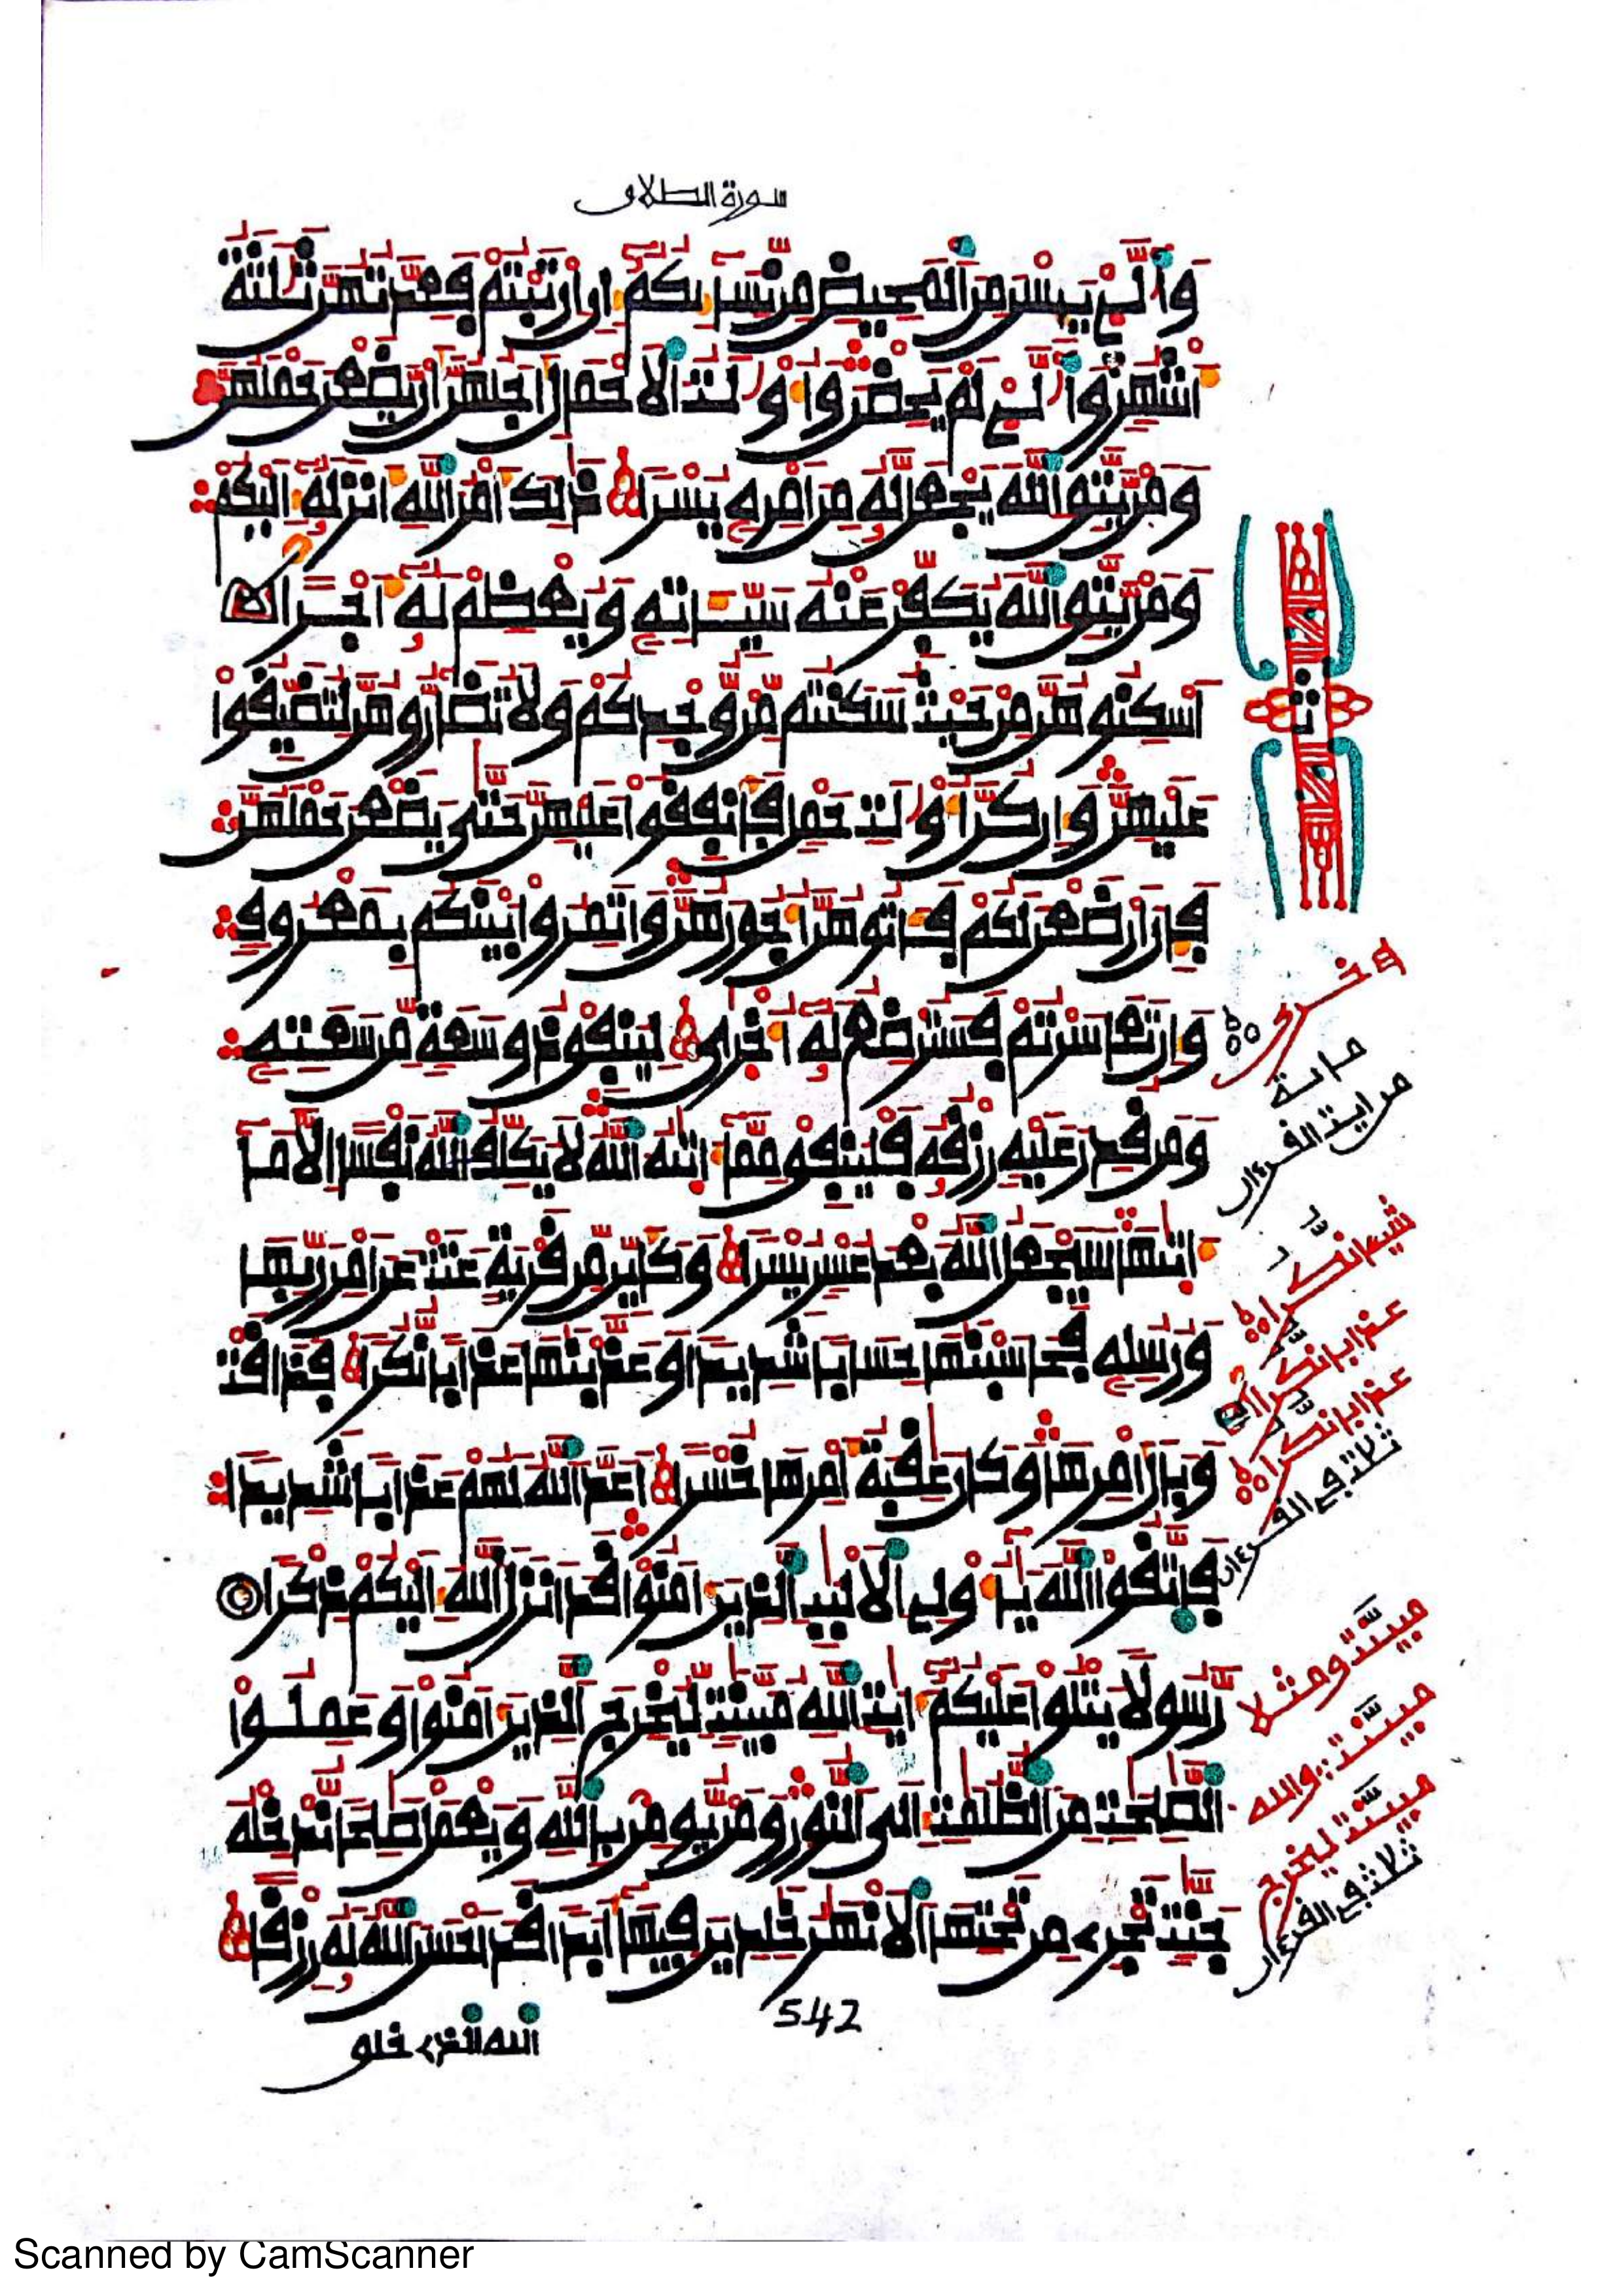 سورة الطلاق
وَالَّٰٓـِٔے يَئِسْنَ مِنَ اَلْمَحِيضِ مِن نِّسَآئِكُمُۥٓ إِنِ اِرْتَبْتُمْ فَعِدَّتُهُنَّ ثَلَٰثَةُ
أَشْهُرٖ وَالَّٰٓـِٔے لَمْ يَحِضْنَ وَأُوْلَٰتُ اُلْأَحْمَالِ أَجَلُهُنَّ أَنْ يَّضَعْنَ حَمْلَهُنَّ
وَمَنْ يَّتَّقِ اِللَّهَ يَجْعَل لَّهُۥ مِنَ اَمْرِهِۦ يُسْراٗ ذَٰلِكَ أَمْرُ اُللَّهِ أَنزَلَهُۥٓ إِلَيْكُمْ
وَمَنْ يَّتَّقِ اِللَّهَ يُكَفِّرْ عَنْهُ سَيِّـَٔاتِهِۦ وَيُعْظِمْ لَهُۥٓ أَجْراً
اَسْكِنُوهُنَّ مِنْ حَيْثُ سَكَنتُم مِّنْ وُّجْدِكُمْ وَلَا تُضَآرُّوهُنَّ لِتُضَيِّقُواْ
عَلَيْهِنَّ وَإِن كُنَّ أُوْلَٰتِ حَمْلٖ فَأَنفِقُواْ عَلَيْهِنَّ حَتَّىٰ يَضَعْنَ حَمْلَهُنَّ
فَإِنَ اَرْضَعْنَ لَكُمْ فَـَٔاتُوهُنَّ أُجُورَهُنَّ وَاتَمِرُواْ بَيْنَكُم بِمَعْرُوفٖ
وَإِن تَعَاسَرْتُمْ فَسَتُرْضِعُ لَهُۥٓ أُخْرَىٰ لِيُنفِقْ ذُو سَعَةٖ مِّن سَعَتِهِۦ
وَمَن قُدِرَ عَلَيْهِ رِزْقُهُۥ فَلْيُنفِقْ مِمَّآ ءَاتَىٰهُ اُللَّهُ لَا يُكَلِّفُ اُللَّهُ نَفْساً اِلَّا مَآ
ءَاتَىٰهَا سَيَجْعَلُ اُللَّهُ بَعْدَ عُسْرٖ يُسْراٗ وَكَأَيِّن مِّن قَرْيَةٍ عَتَتْ عَنَ اَمْرِ رَبِّهَا
وَرُسُلِهِۦ فَحَاسَبْنَٰهَا حِسَاباٗ شَدِيداٗ وَعَذَّبْنَٰهَا عَذَاباٗ نُّكُراٗ فَذَاقَتْ
وَبَالَ أَمْرِهَا وَكَانَ عَٰقِبَةُ أَمْرِهَا خُسْراً اَعَدَّ اَللَّهُ لَهُمْ عَذَاباٗ شَدِيداٗ
فَاتَّقُواْ اُللَّهَ يَٰٓأُوْلِے اِلْأَلْبَٰبِ اِلذِينَ ءَامَنُواْ قَدَ اَنزَلَ اَللَّهُ إِلَيْكُمْ ذِكْراٗ
رَّسُولاٗ يَتْلُواْ عَلَيْكُمُۥٓ ءَايَٰتِ اِللَّهِ مُبَيَّنَٰتٖ لِّيُخْرِجَ اَلذِينَ ءَامَنُواْ وَعَمِلُواْ
اُلصَّٰلِحَٰتِ مِنَ اَلظُّلُمَٰتِ إِلَى اَلنُّورِ وَمَنْ يُّومِنۢ بِاللَّهِ وَيَعْمَلْ صَٰلِحاٗ نُّدْخِلْهُ
جَنَّٰتٖ تَجْرِے مِن تَحْتِهَا اَلْأَنْهَٰرُ خَٰلِدِينَ فِيهَآ أَبَداٗ قَدَ اَحْسَنَ اَللَّهُ لَهُۥ رِزْقاً
542
الله الذي خلق
شيئا نكرا
عذابا نكرا
عذابا نكرا
ثلاث في القرءان
مبينت ومثلا
مبينت والله
مبينت ليخرج
ثلاث في القرءان
Scanned by CamScanner